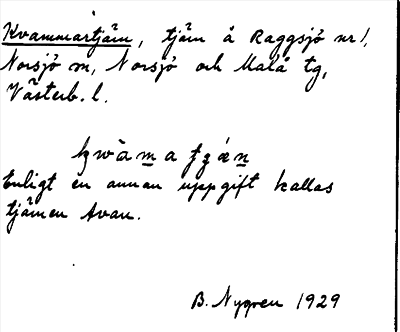 Kvammartjärn, tjärn å Raggsjö nr 1,
Norsjö sn, Norsjö och Malå tg,
Västerb. l.
Enligt en annan uppgift kallas
tjärnen Avan.
B. Nygren 1929